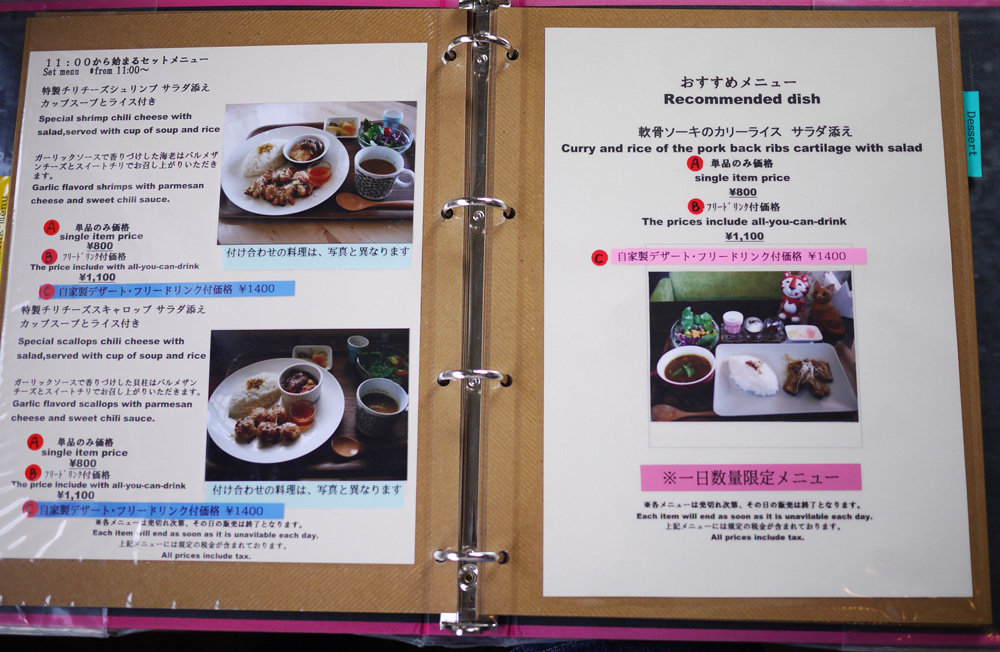 11:00から始まるセットメニュー
Set menu *from 11:00～
特製チリチーズシュリンプ サラダ添え
カップスープとライス付き
Special shrimp chili cheese with
salad,served with cup of soup and rice
ガーリックソースで香りづけした海老はパルメザ
ンチーズとスイートチリでお召し上がりいただき
ます。
Garlic flavord shrimps with parmesan
cheese and sweet chili sauce.
A 単品のみ価格
single item price
¥800
B フリードリンク付価格
The price include with all-you-can-drink
¥1,100
C 自家製デザート・フリードリンク付価格 ¥1400
付け合わせの料理は、写真と異なります
特製チリチーズスキャロップ サラダ添え
カップスープとライス付き
Special scallops chili cheese with
salad,served with cup of soup and rice
ガーリックソースで香りづけした貝柱はパルメザン
チーズとスイートチリでお召し上がりいただきます。
Garlic flavord scallops with parmesan
cheese and sweet chili sauce.
A 単品のみ価格
single item price
¥800
B フリードリンク付価格
The price include with all-you-can-drink
¥1,100
C 自家製デザート・フリードリンク付価格 ¥1400
付け合わせの料理は、写真と異なります
※各メニューは売切れ次第、その日の販売は終了となります。
Each item will end as soon as it is unavilable each day.
上記メニューには規定の税金が含まれております。
All prices include tax.
おすすめメニュー
Recommended dish
軟骨ソーキのカリーライス サラダ添え
Curry and rice of the pork back ribs cartilage with salad
A 単品のみ価格
single item price
¥800
B フリードリンク付価格
The prices include all-you-can-drink
¥1,100
C 自家製デザート・フリードリンク付価格 ¥1400
※一日数量限定メニュー
※各メニューは売切れ次第、その日の販売は終了となります。
Each item will end as soon as it is unavilable each day.
上記メニューには規定の税金が含まれております。
All prices include tax.
Dessert